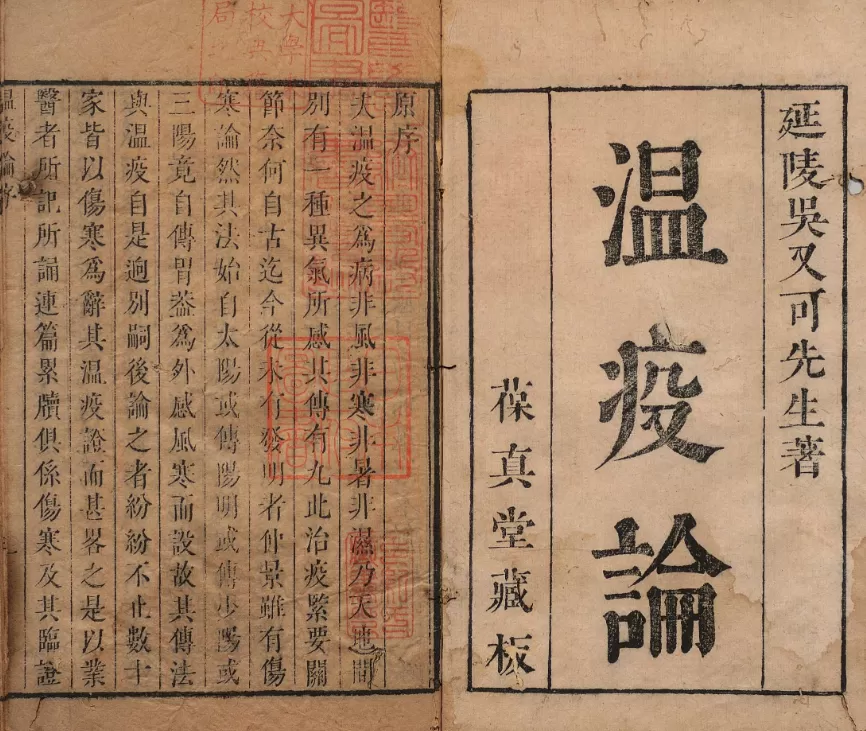 延陵吳又可先生著
温疫論
葆真堂藏板
原序
夫温疫之為病非風非寒非暑非濕乃天地間
別有一種異氣所感其傳有九此治疫緊要關
節奈何自古迄今從未有發明者仲景雖有傷
寒論然其法始自太陽或傳陽明或傳少陽或
三陽竟自傳胃葢為外感風寒而設故其傳法
與温疫自是逈別嗣後論之者紛紛不止數十
家皆以傷寒為辭其温疫證而甚畧之是以業
醫者所記所誦連篇累牘俱係傷寒及其臨證
温疫論序